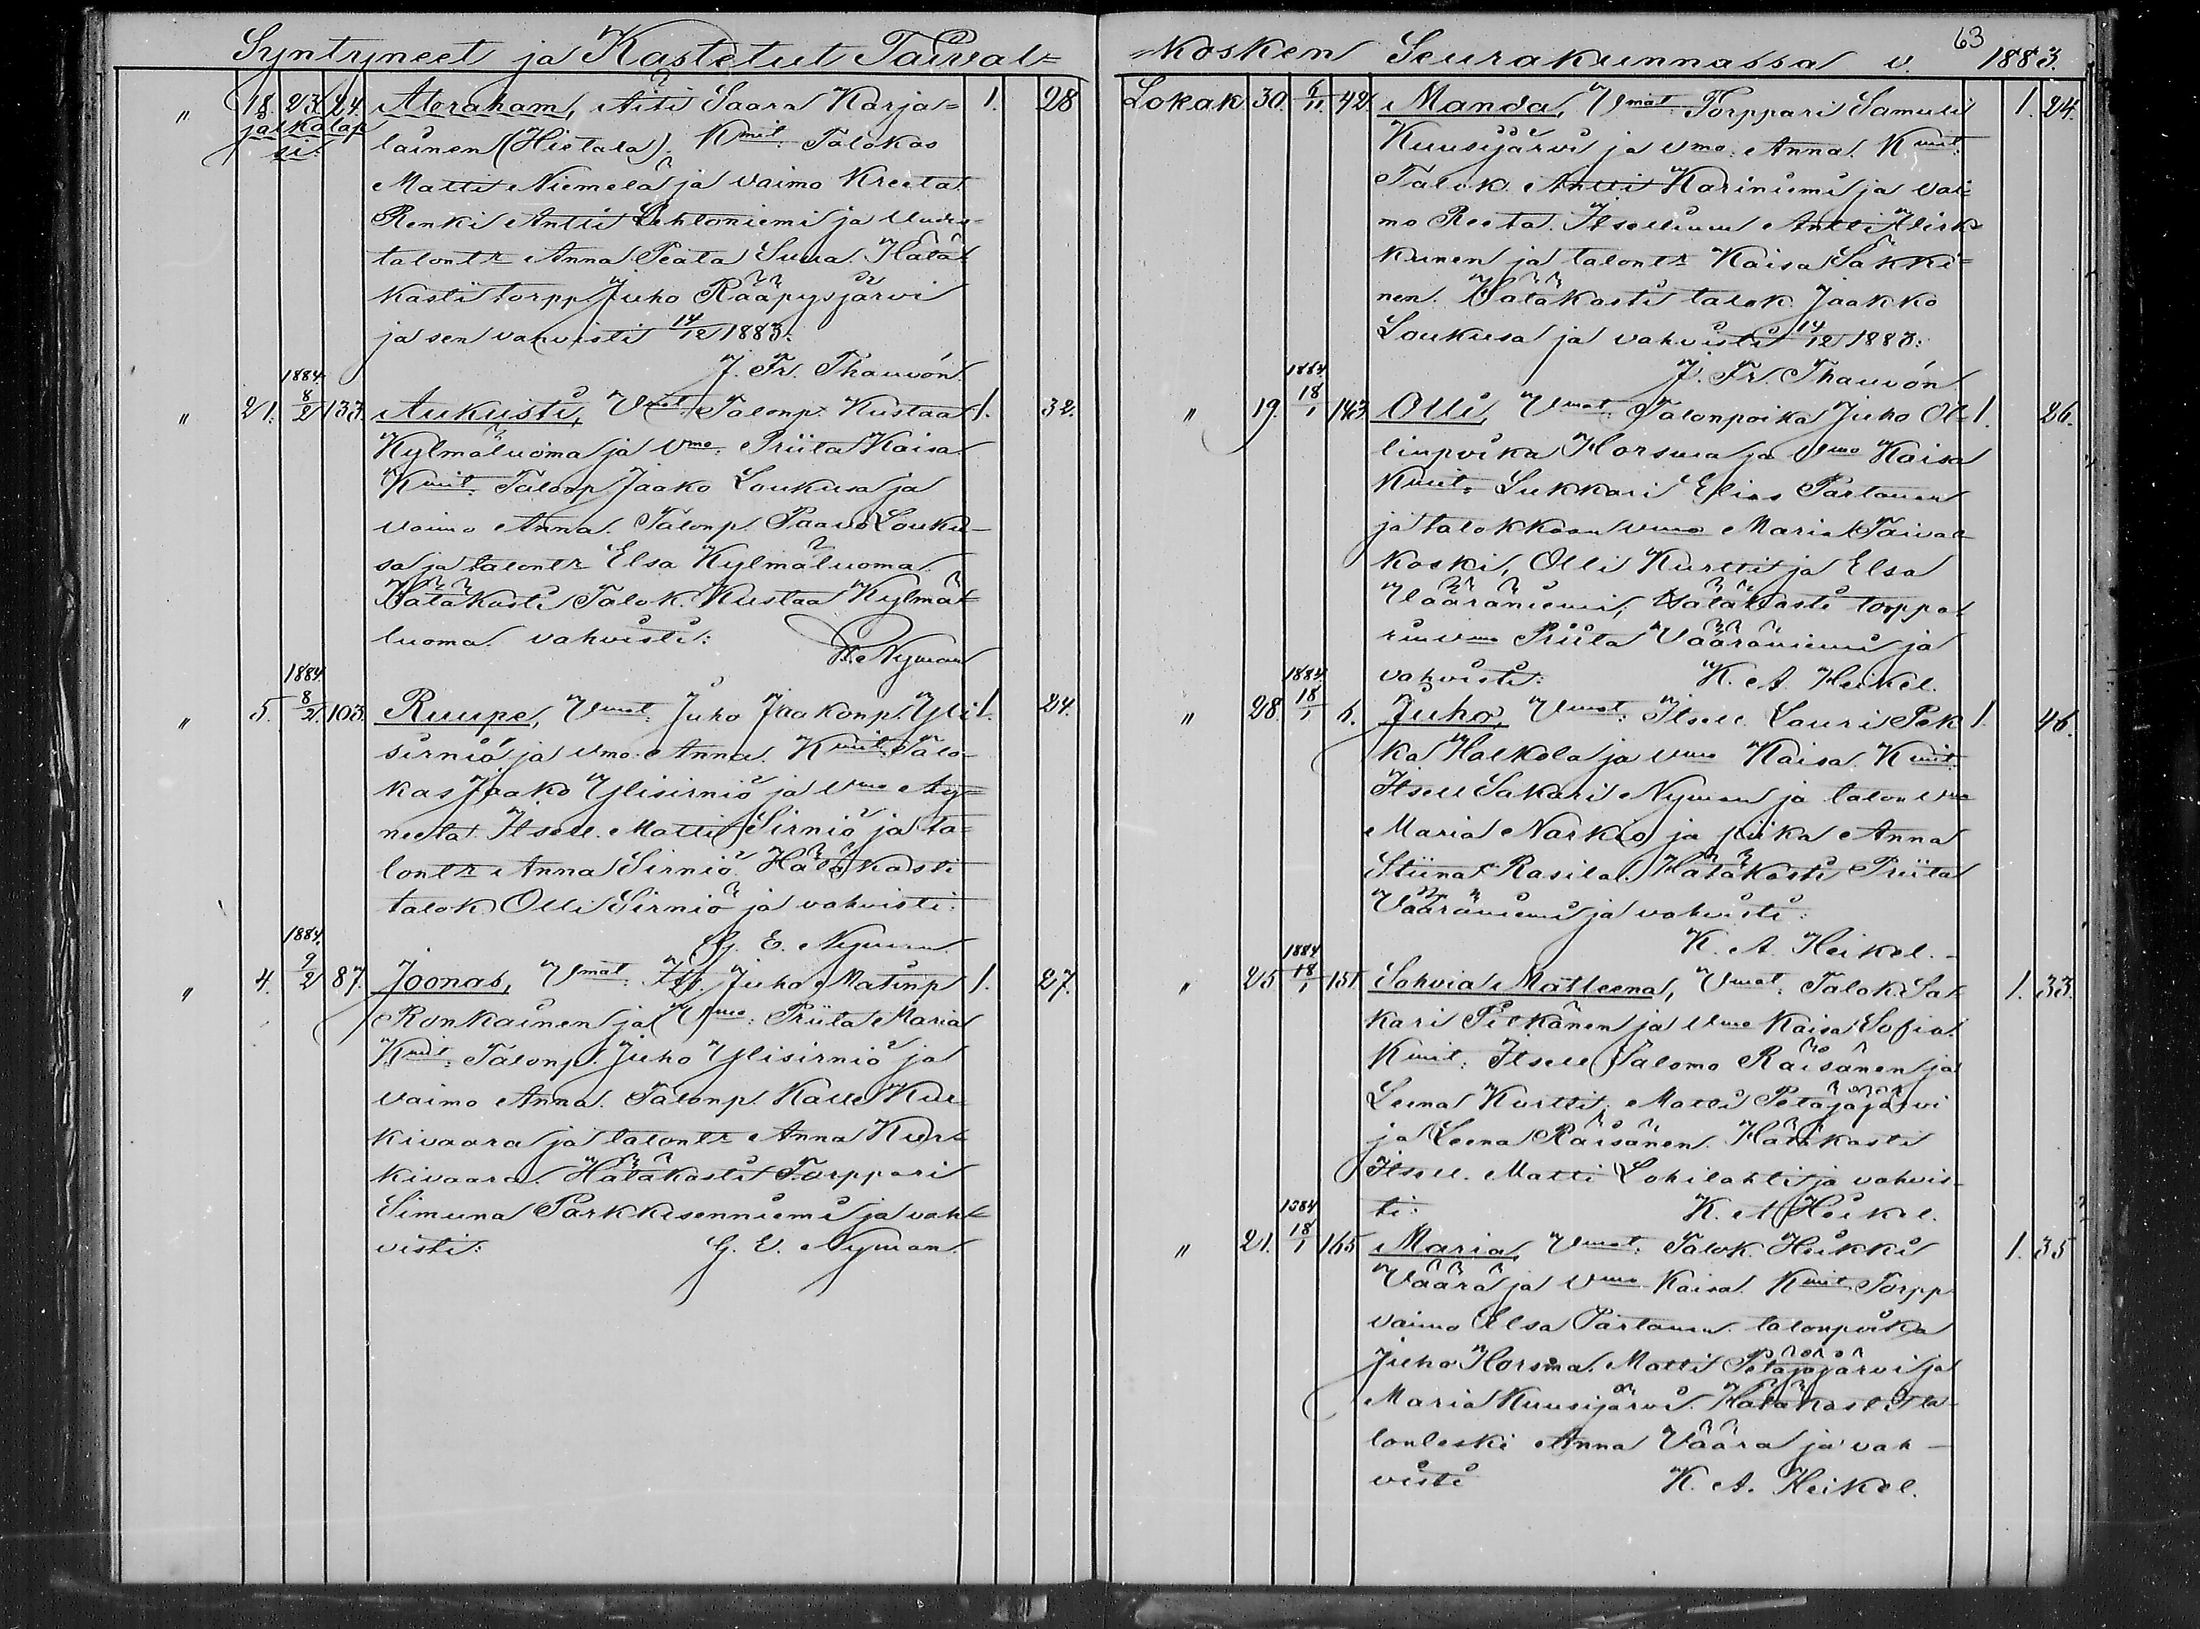 Syntyneet ja Kastetut Taival=
" 18. 23. 24. Aleraham, Äiti Saara Karja= 1. 28
jalkalap lainen (Hietala). Kmit: Talokas
si.
Matti Niemelä ja vaimo Kreeta
Renki Antti Lehtoniemi ja
talontr Anna Peata Suua. Hätä
kasti torpp Juho Rääpysjärvi
ja sen vahvisti 14/12 1883:
J. Fr. Thauvón.
1884.
" 21. 8/2 133. Aukusti, Vmat. Talonp. Kustaa 1. 32.
Kylmäluoma ja Vmo. Priita Kaisa
Kmit: Talonp. Jaako Loukusa ja
vaimo Anna. Talonp. Paavo Louku-
sa ja talontr Elsa Kylmäluoma.
Hätäkasti Talok. Kustaa Kylmä=
luoma. vahvisti:
Nyman
1884.
" 5. 8/2 103. Ruupe, Vmat: Juho Jaakonp. Yli 1. 24.
sirniö ja vmo. Anna. Kmit. Talo-
kas Jaako Ylisirniö ja Vmo Ag=
neeta. Itsell. Matti Sirniö ja ta=
lontr Anna Sirniö. Hätäkasti
talok. Olli Sirniö ja vahvisti:
G. E. Nyman
1884.
" 4. 9/2 87. Joonas, Vmat: Its. Juho Matinp 1. 27.
Ronkainen ja Vmo: Priita Maria
Kmit: Talonp. Juho Ylisirniö ja
vaimo Anna. Talonp. Kalle Kur-
kivaara ja talontr Anna Kur-
kivaara. Hätäkasti Torppari
Simuna Parkkisenniemi ja vah=
visti: G. E. Nyman.
63
=kosken Seurakunnassa v. 1883.
Lokak. 30. 6/11. 42. Manda, Vmat Torppari Samuli 1. 24.
Kuusijärvi ja vmo: Anna. Kmit:
Talok. Antti Kariniemi ja vai=
mo Reeta. Itsellinen Antti
kunen ja talontr Kaisa Säkki=
nen. Hätäkasti talok. Jaakko
Loukusa ja vahvisti 14/12 1883:
J. Fr. Thauvón
1884.
" 19. 18/1 143 Olli, Vmat. Talonpoika Juho Ol- 1. 26.
linpoika Horsma ja Vmo Kaisa
Kmit: Lukkari Elias Partanen
ja talokkaan vmo Maria Taival
koski, Olli Kurtti ja Elsa
Vääräniemi; Hätäkasti torppa=
rin vmo Priita Vääräniemi ja
vahvisti: K. A. Heikel.
1884.
" 28. 18/1 5. Juho, Vmat: Itsell. Lauri Pek 1. 46.
ka Halkola ja vmo Kaisa. Kmit.
Itsell Sakari Nyman ja talon vmo
Maria Narkio ja piika Anna
Stiina Rasila. Hätäkasti Priita
Vääräniemi ja vahvisti:
K. A. Heikel.-
1884
" 25 18/1 151. Sohvia Matleena, Vmat: Talok. Sa= 1. 33.
kari Pitkänen ja vmo Kaisa Sofia.
Kmit: Itsell Salomo Räisänen ja
Leena Kurtti. Matti Petäjäjärvi
ja Leena Räisänen. Hätäkasti
Itsell. Matti Lohilahti ja vahvis-
ti: K. A. Heikel.
1884
" 21. 18/1 165 Maria Vmat: Talok. Heikki 1. 35
Väärä ja vmo Kaisa. Kmit. Torpp
vaimo Elsa Partanen. talonpoika
Juho Horsma. Matti Petäjäjärvi ja
Maria Kuusijärvi. Hätäkasti ta-
lonleski Anna Väärä ja vah-
visti K. A. Heikel.